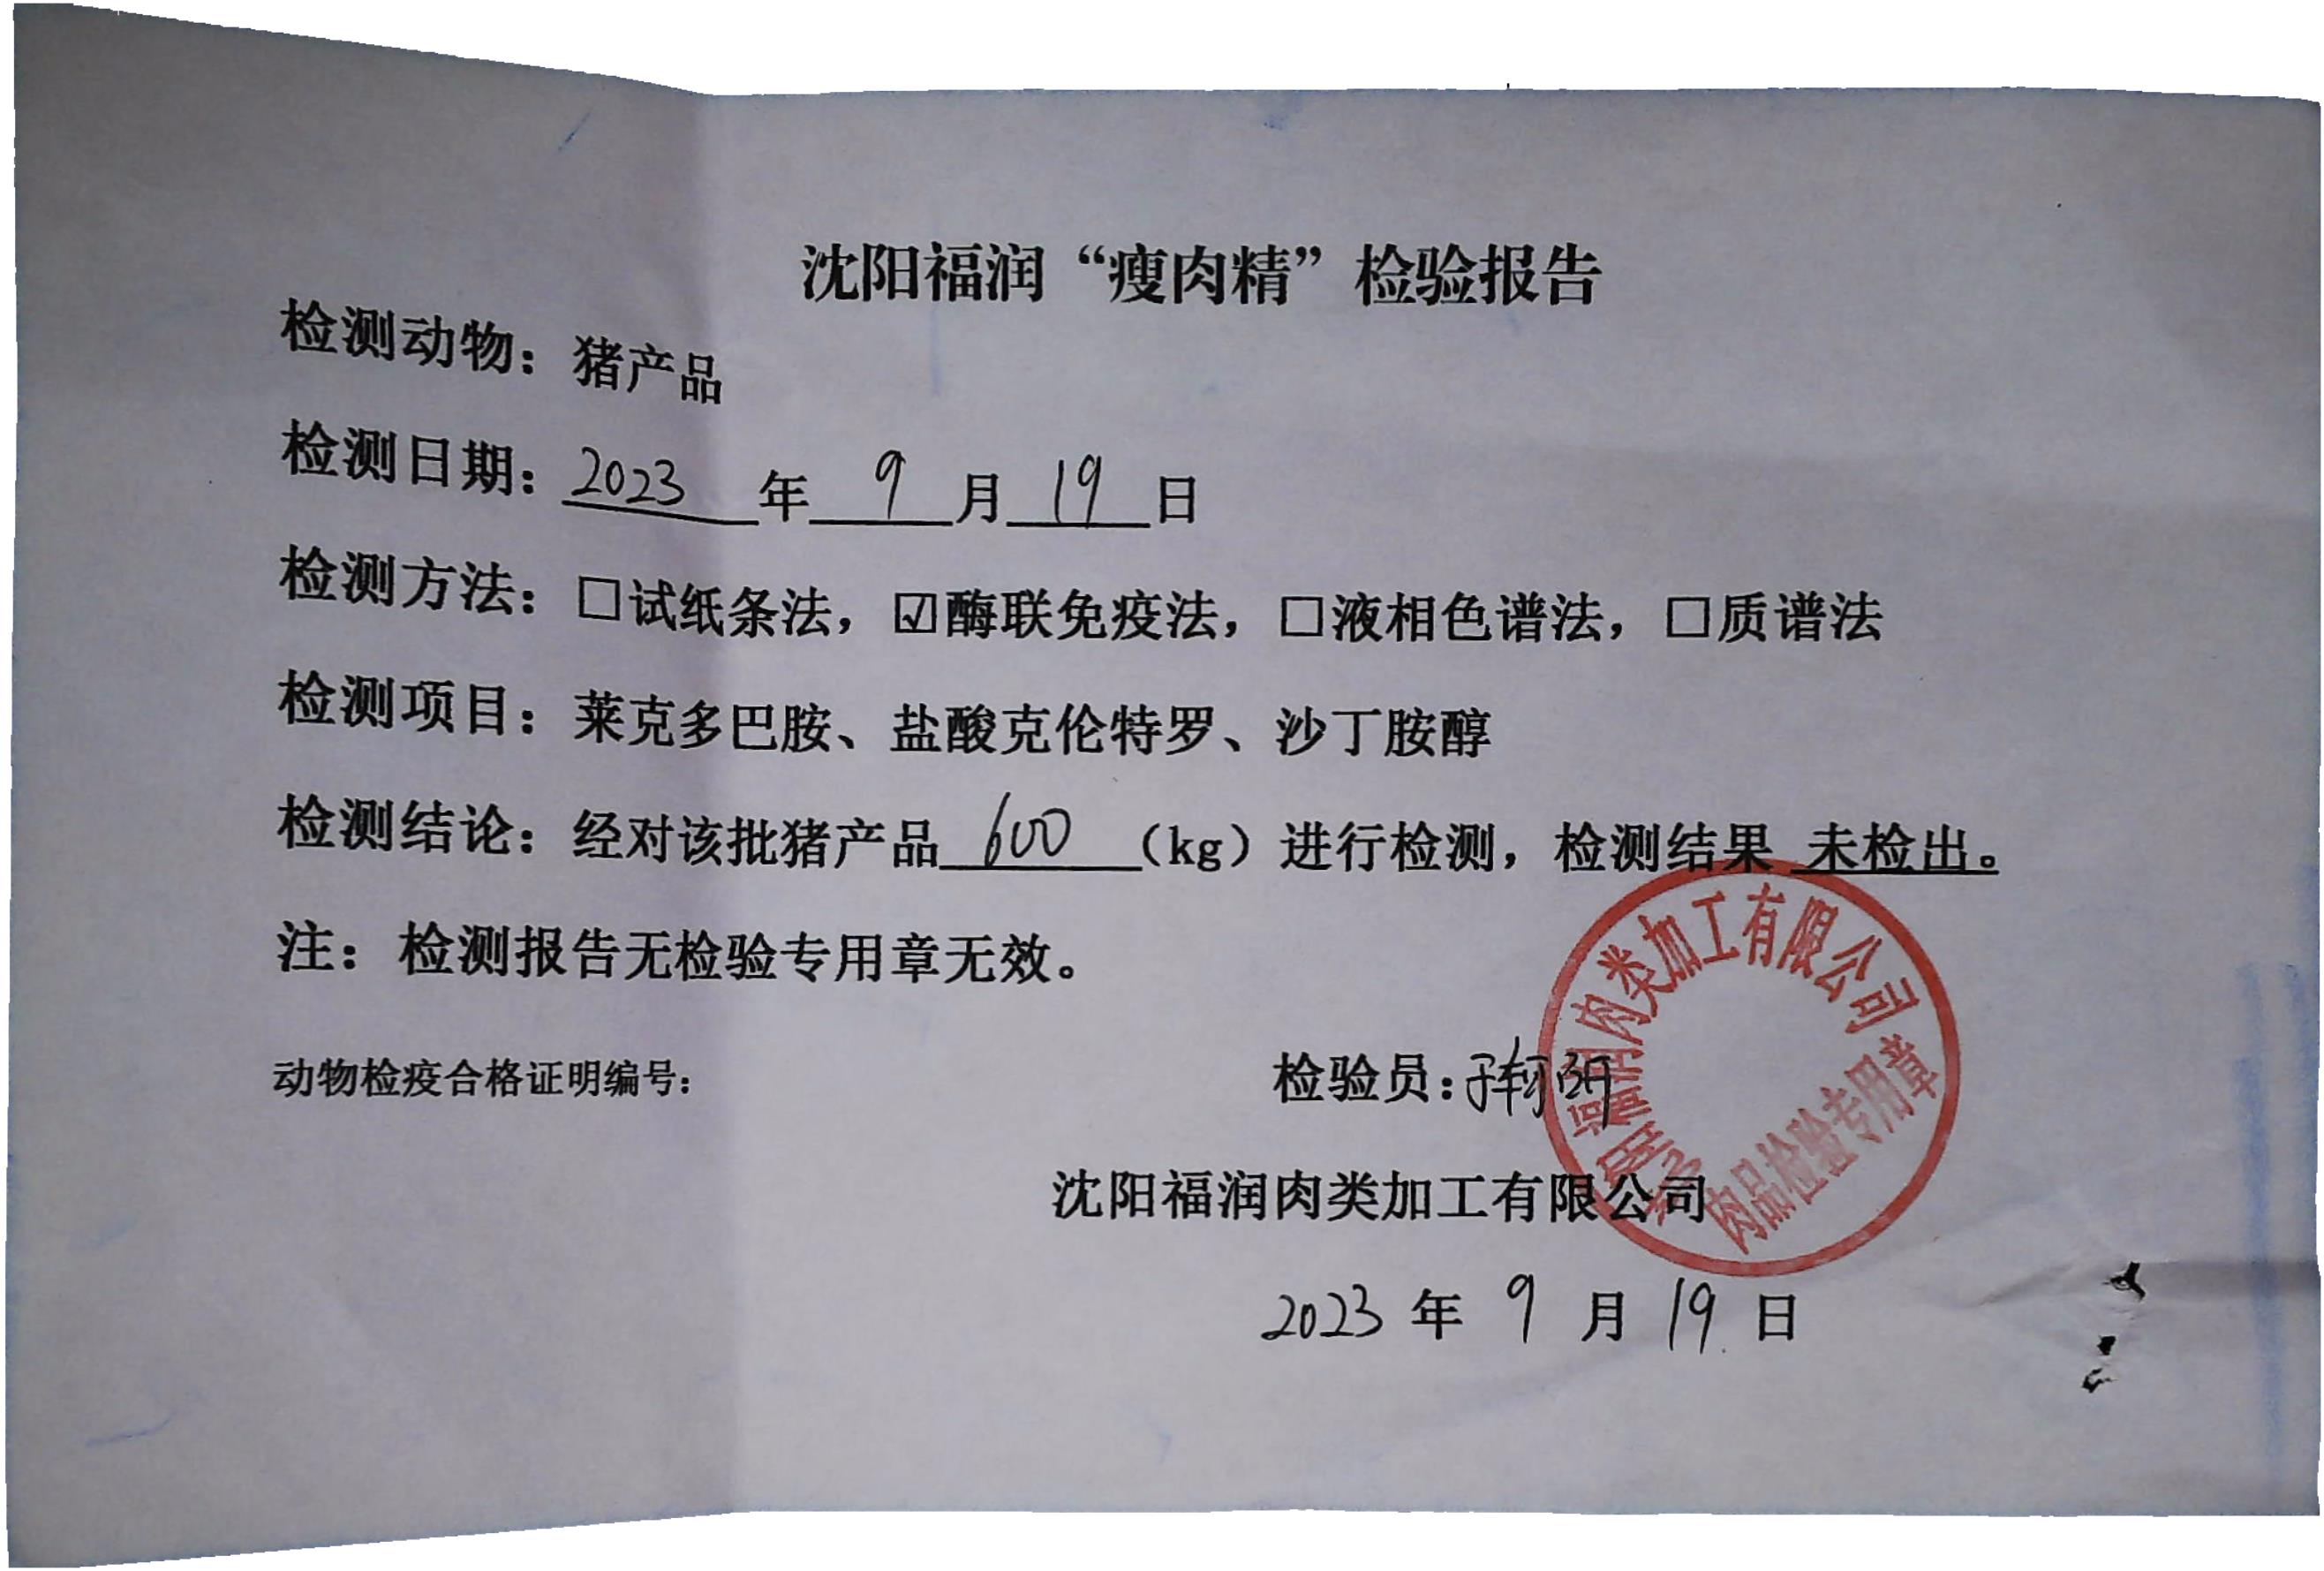 沈阳福润“瘦肉精”检验报告
检测动物：猪产品
检测日期：2023年9月19日
检测方法：□试纸条法，☑酶联免疫法，□液相色谱法，□质谱法
检测项目：莱克多巴胺、盐酸克伦特罗、沙丁胺醇
检测结论：经对该批猪产品600（kg）进行检测，检测结果 未检出。
注：检测报告无检验专用章无效。
动物检疫合格证明编号：
检验员：
沈阳福润肉类加工有限公司
肉品检验专用章
沈阳福润肉类加工有限公司
2023年9月19日